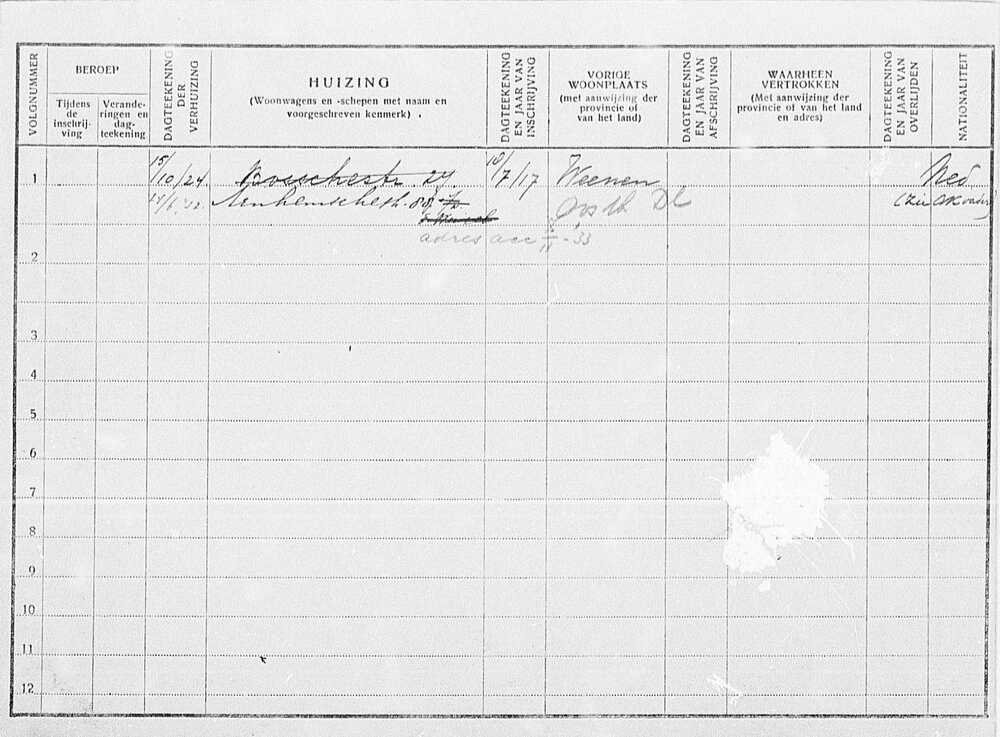 VOLGNUMMER
BEROEP
Tijdens
de
inschrij-
ving
Verande-
ringen en
dag-
teekening
DAGTEEKENING
DER
VERHUIZING
HUIZING
(Woonwagens en -schepen met naam en
voorgeschreven kenmerk)
DAGTEEKENING
EN JAAR VAN
INSCHRIJVING
VORIGE
WOONPLAATS
(met aanwijzing der
provincie of
van het land)
DAGTEEKENING
EN JAAR VAN
AFSCHRIJVING
WAARHEEN
VERTROKKEN
(Met aanwijzing der
provincie of van het land
en adres)
DAGTEEKENING
EN JAAR VAN
OVERLIJDEN
NATIONALITEIT
1
15/10/24
Bosschestr 27
10/7/17
Weenen
Ned
Arnhemschestr. 88
(zie AK
adres acc - 33
2
3
4
5
6
7
8
9
10
11
12